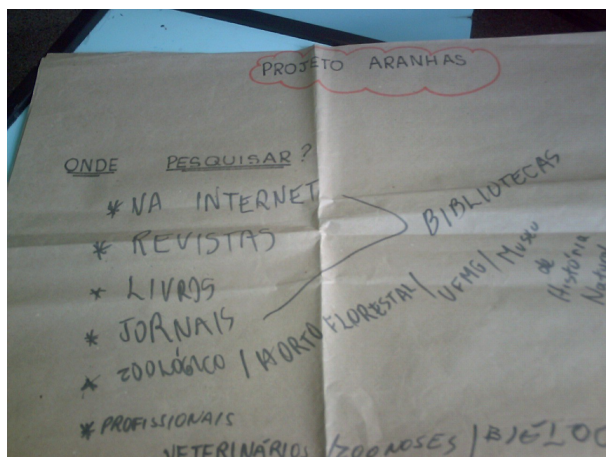 PROJETO ARANHAS
ONDE PESQUISAR?
* NA INTERNET
* REVISTAS
* LIVROS
* JORNAIS
BIBLIOTECAS
* ZOOLÓGICO / HORTO FLORESTAL / UFMG / Museu
de
História
Natural
* PROFISSIONAIS
VETERINÁRIOS / ZOONOSES /